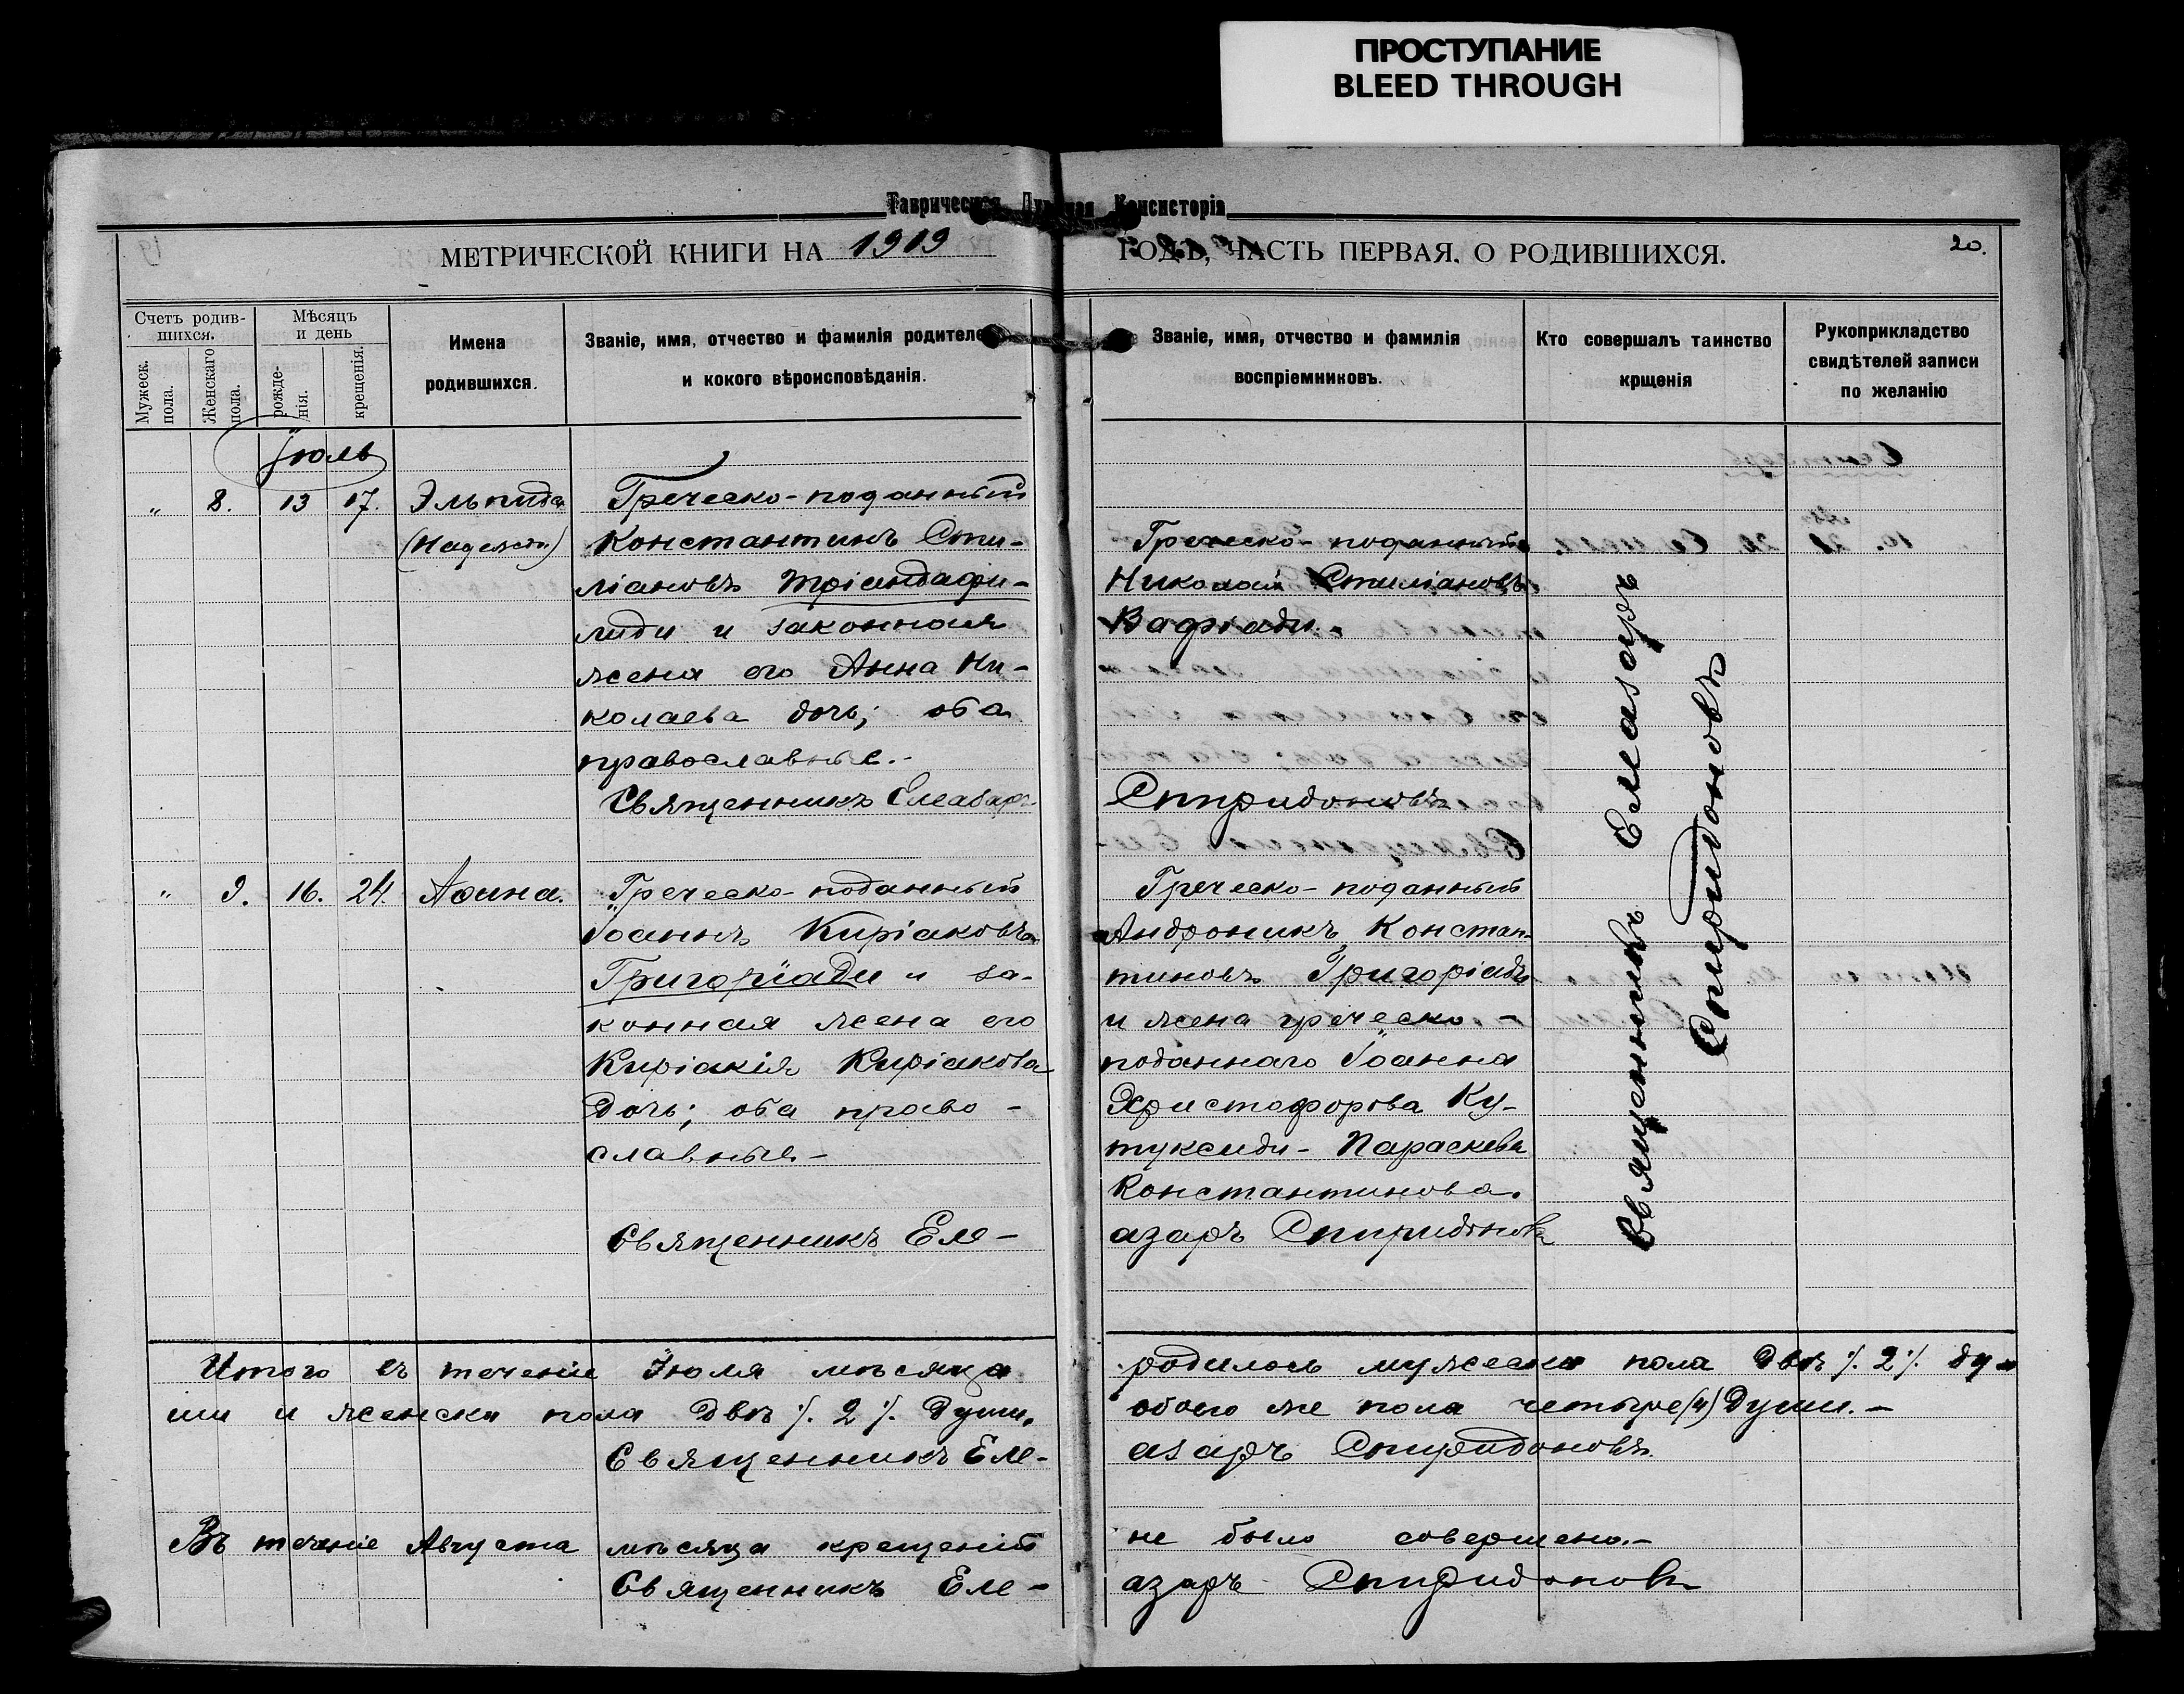 ПРОСТУПАНИЕ
BLEED THROUGH
Таврическая Духовная Консисторія
МЕТРИЧЕСКОЙ КНИГИ НА 1919 ГОДЪ, ЧАСТЬ ПЕРВАЯ, О РОДИВШИХСЯ.
20.
Счетъ родив-
шихся.
Мужеск.
пола.
Женскаго
пола.
Мѣсяцъ
и день
рожде-
нія.
крещенія.
Имена
родившихся.
Званіе, имя, отчество и фамилія родителей
и кокого вѣроисповѣданія.
Званіе, имя, отчество и фамилія
воспріемниковъ.
Кто совершалъ таинство
крщенія
Рукоприкладство
свидѣтелей записи
по желанію
Іюль
" 8. 13 17. Эльпида
(Надежда)
Греческо-поданный
Константинъ Сти-
ліановъ Тріандафи-
лиди и законная
жена его Анна Ни-
колаева дочь; оба
православные.-
Священникъ Елеазаръ
Греческо-поданный
Николай Стиліановъ
Вафіади.
Спиридоновъ
" 9. 16. 24. Аѳина.
Греческо-поданный
Іоаннъ Киріаковъ
Григоріади и за-
конная жена его
Киріакія Киріакова
дочь; оба право-
славные-
Священникъ Еле-
Греческо-поданный
Андроникъ Констан-
тиновъ Григоріади
и жена греческо-
поданнаго Іоанна
Христофорова Ку-
туксиди- Параскева
Константинова.
азаръ Спиридоновъ
Священникъ Елеазаръ
Спиридоновъ
Итого въ теченіе Іюля мѣсяца родилось мужеска пола двѣ ·/. 2 ·/. ду-
ши и женска пола двѣ ·/. 2 ·/. души, обоего же пола четыре (4) души.-
Священникъ Еле- азаръ Спиридоновъ
Въ теченіе Августа мѣсяца крещеній не было совершено.-
Священникъ Еле- азаръ Спиридоновъ